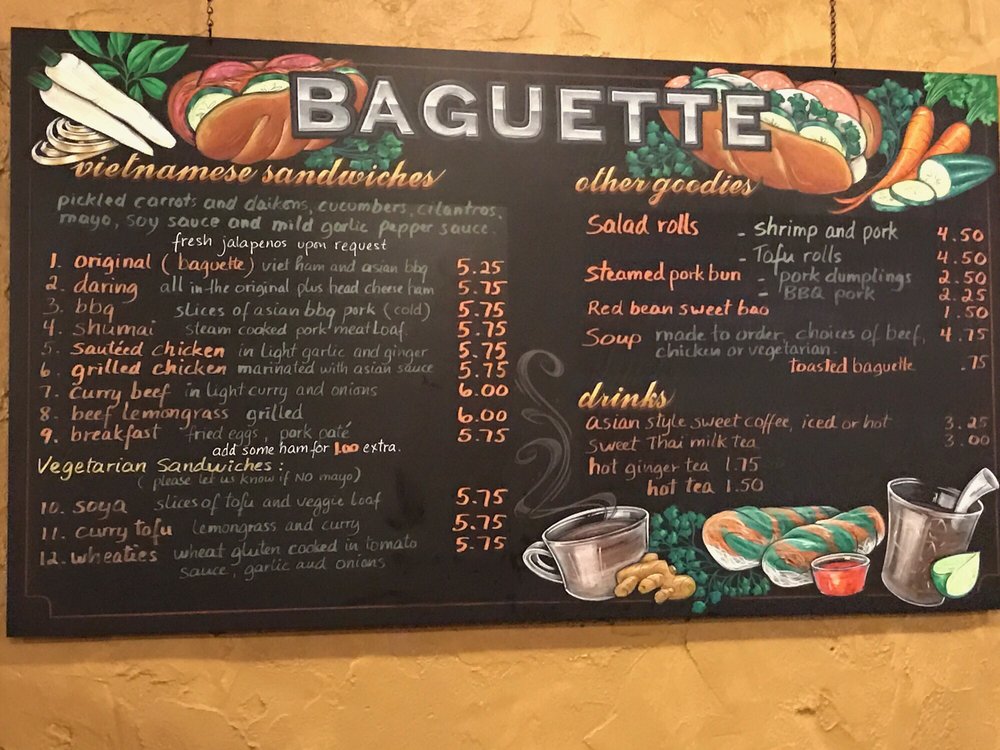 BAGUETTE
vietnamese sandwiches
pickled carrots and daikons, cucumbers, cilantros,
mayo, soy sauce and mild garlic pepper sauce.
fresh jalapenos upon request
1. original (baguette) viet ham and asian bbq 5.25
2. daring all in the original plus head cheese ham 5.75
3. bbq slices of asian bbq pork (cold) 5.75
4. shumai steam cooked pork meat loaf 5.75
5. sautéed chicken in light garlic and ginger 5.75
6. grilled chicken marinated with asian sauce 5.75
7. curry beef in light curry and onions 6.00
8. beef lemongrass grilled 6.00
9. breakfast fried eggs, pork paté 5.75
add some ham for 1.00 extra.
Vegetarian Sandwiches:
(please let us know if NO mayo)
10. soya slices of tofu and veggie loaf 5.75
11. curry tofu lemongrass and curry 5.75
12. wheaties wheat gluten cooked in tomato 5.75
sauce, garlic and onions
other goodies
Salad rolls - shrimp and pork 4.50
- Tofu rolls 4.50
steamed pork bun - pork dumplings 2.50
- BBQ pork 2.25
Red bean sweet bao 1.50
Soup made to order, choices of beef, 4.75
chicken or vegetarian.
toasted baguette .75
drinks
asian style sweet coffee, iced or hot 3.25
sweet Thai milk tea 3.00
hot ginger tea 1.75
hot tea 1.50